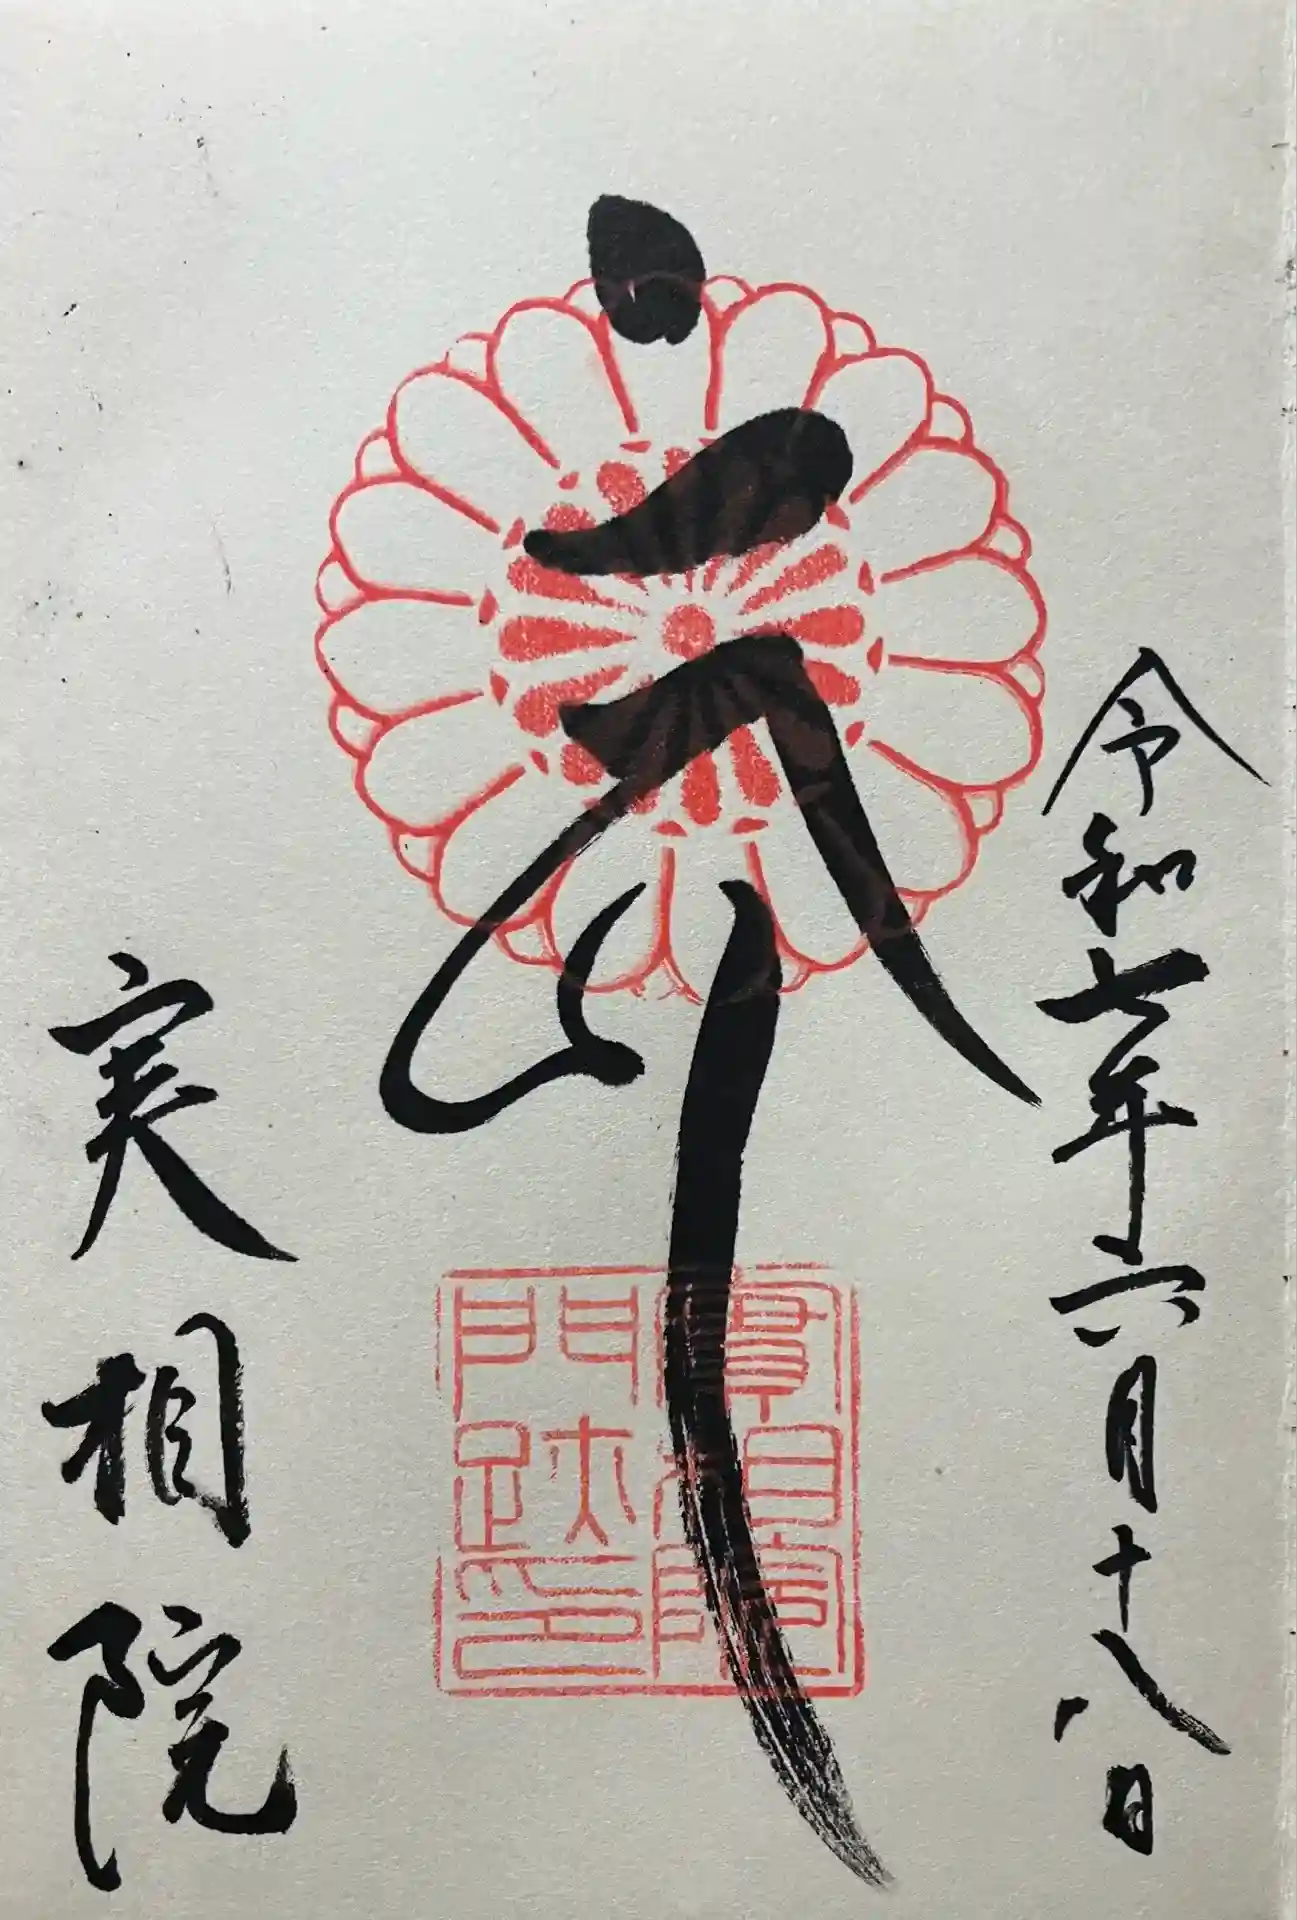 令和七年六月十八日
実相院
實相院
門跡印